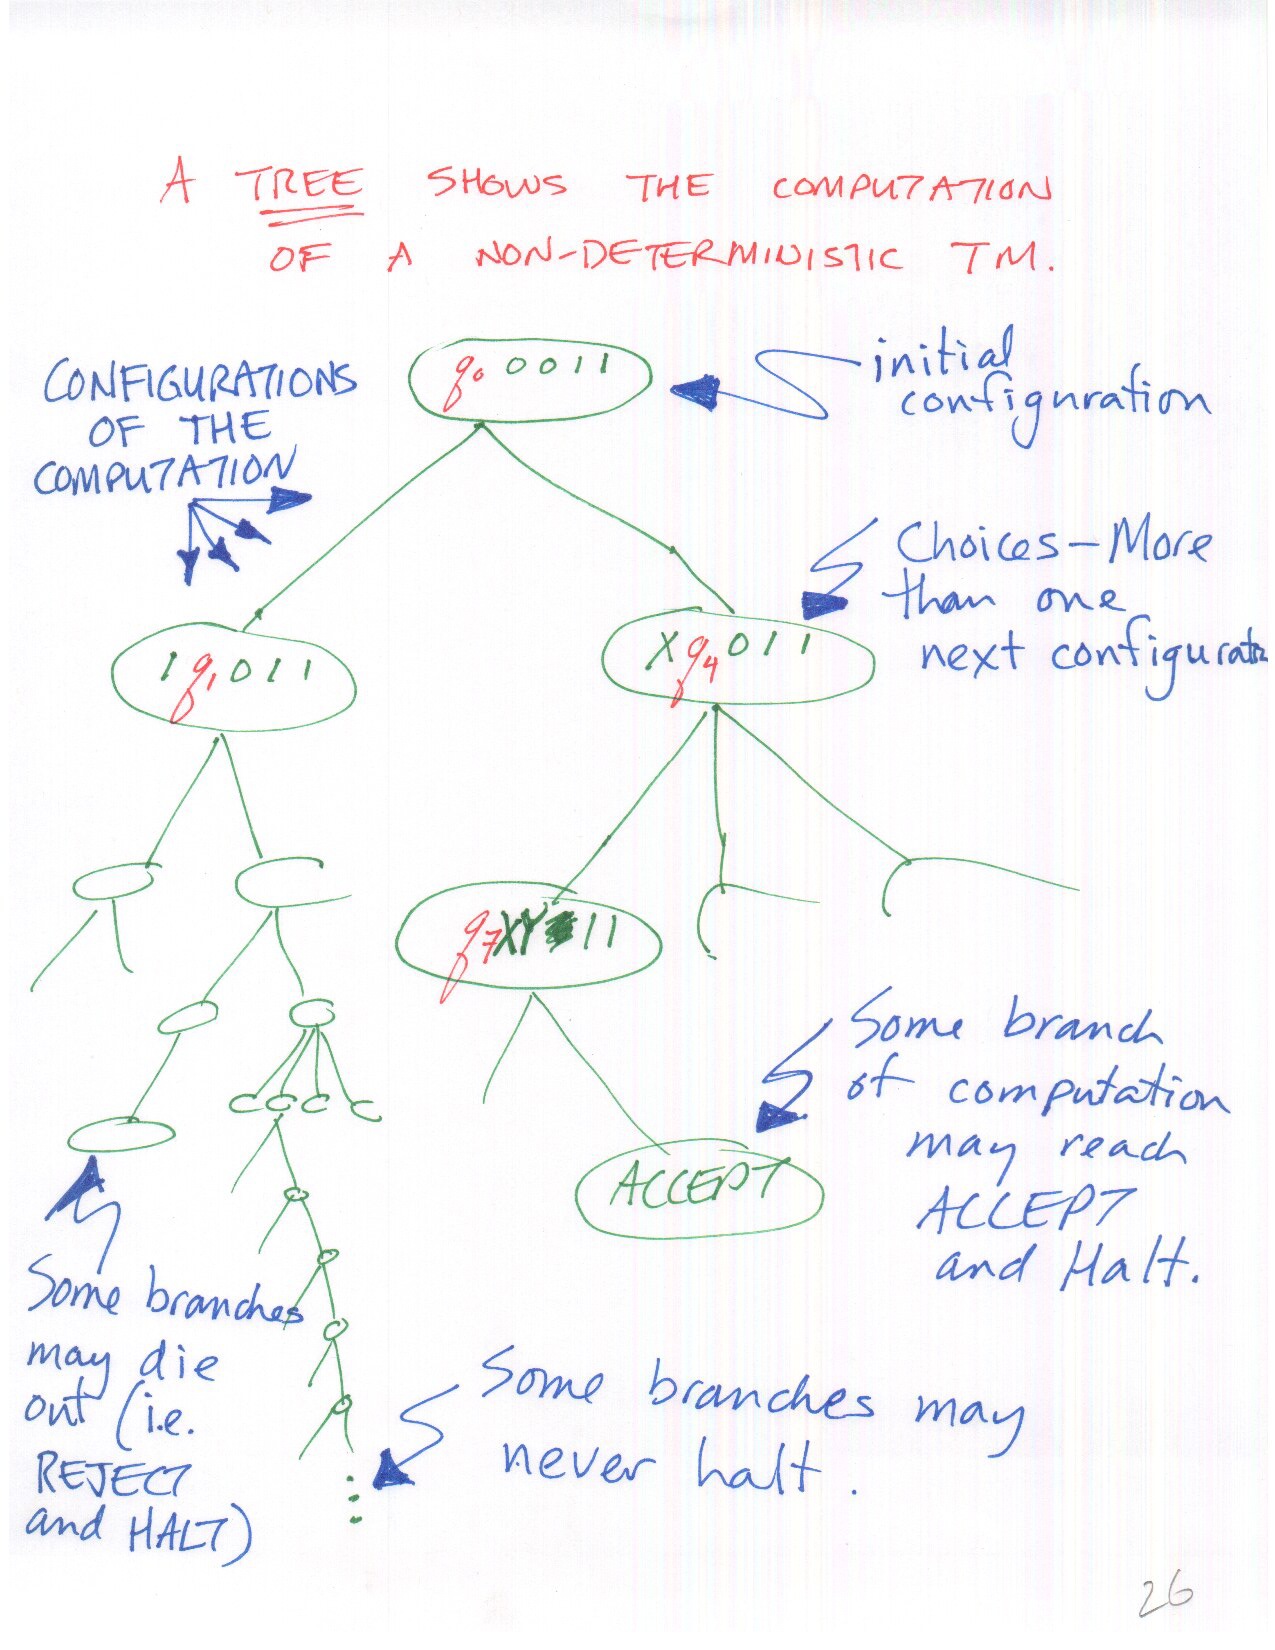 A TREE SHOWS THE COMPUTATION
OF A NON-DETERMINISTIC TM.
q₀ 0 0 1 1
initial
configuration
CONFIGURATIONS
OF THE
COMPUTATION
Choices – More
than one
next configurat
1 q₁ 0 1 1
X q₄ 0 1 1
q₇ X Y 1 1
Some branch
of computation
may reach
ACCEPT
and Halt.
ACCEPT
Some branches
may die
out (i.e.
REJECT
and HALT)
Some branches may
never halt.
26